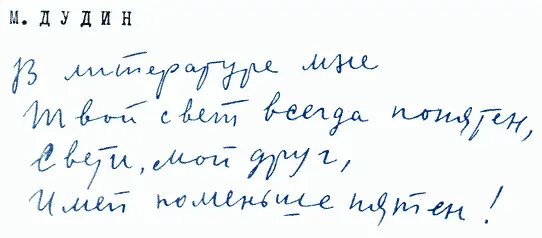 М. ДУДИН
В литературе мне
Твой свет всегда понятен,
Свети, мой друг,
Имей поменьше пятен!